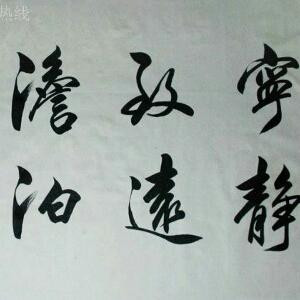 寧靜
致遠
澹泊
热线